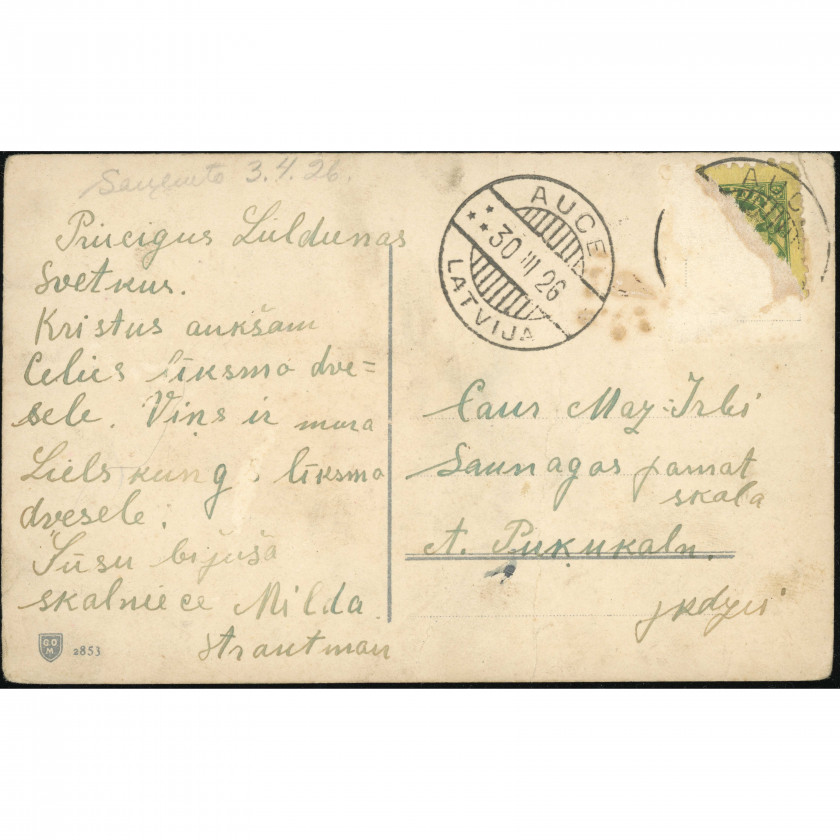 Saņemts 3.4.26.
Priecigus Lieldienas
Svetkus.
Kristus aukšam
Celies līksmo dve=
sele. Viņs ir mūra
Liels kungs līksmo
dvesele;
Jūsu bijuša
skalniece Milda
Strautman
GOM
2853
AUCE
30 III 26
LATVIJA
AUC
Caur Maz-Irbi
Saunagas pamat
skala
A. Puķukaln.